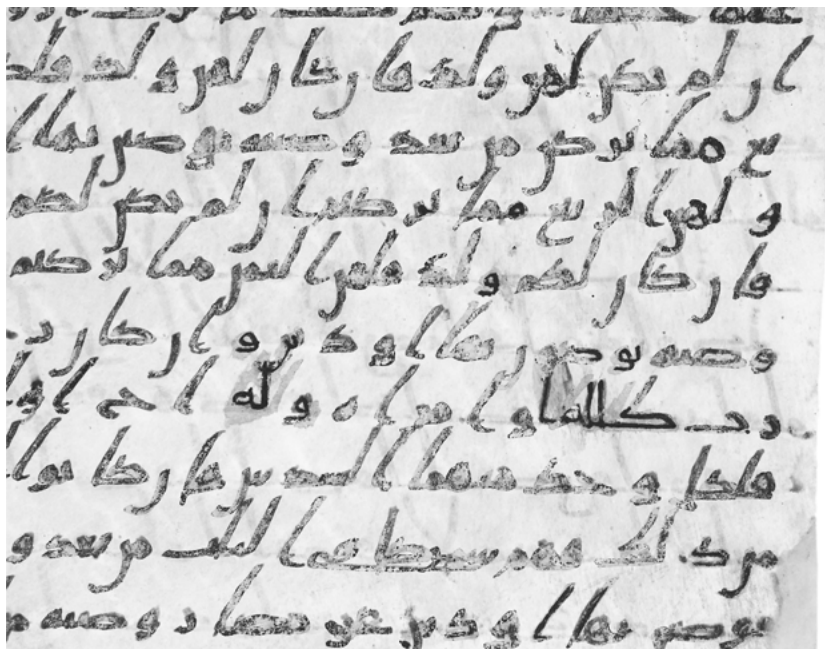 ان لم يكن لهن ولد فان كان لهن ولد فلكم
بع مما تركن من بعد وصيه يوصين بها ا
ولهن الربع مما تركتم ان لم يكن لكم
فان كان لكم ولد فلهن الثمن مما تركتم
وصيه توصون بها او دين وان كان ر
ورث كلله او امراه وله اخ او
فلكل وحد منهما السدس فان كانوا ا
من ذلك فهم شركا في الثلث من بعد و
يوصى بها او دين غير مضار وصيه م